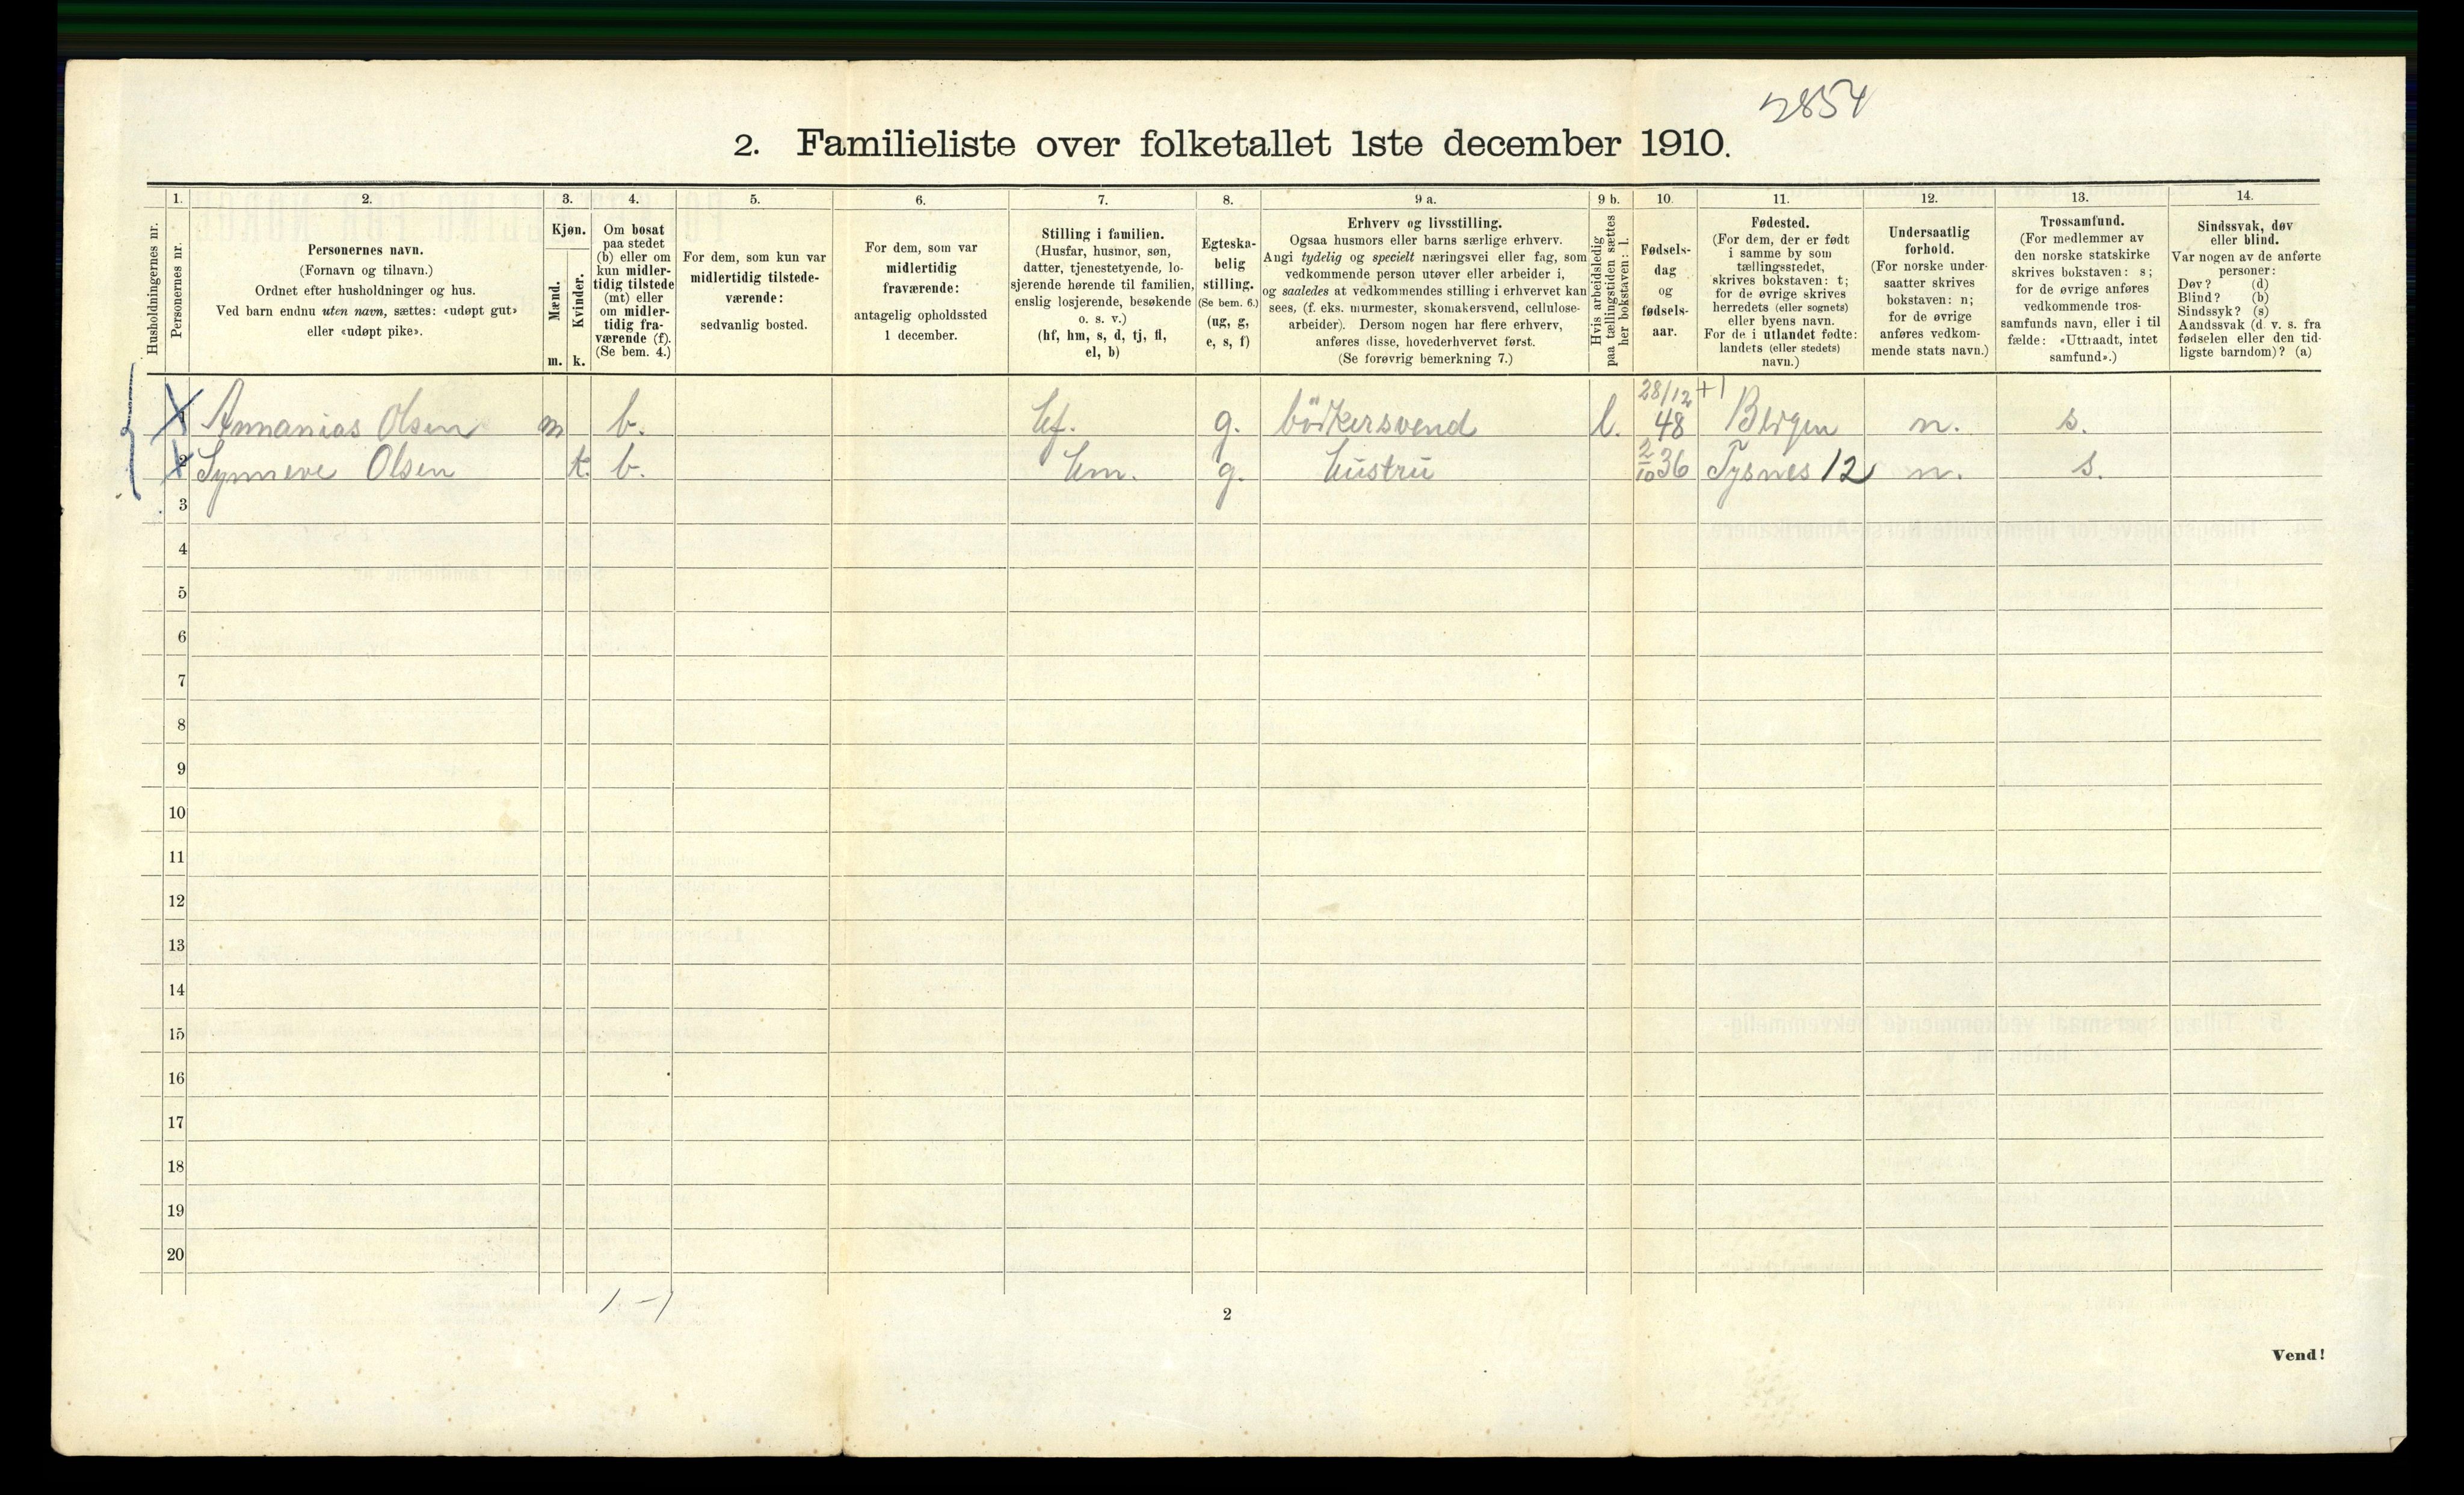 2854
2. Familieliste over folketallet 1ste december 1910.
Husholdningernes nr.
1.
Personernes nr.
2.
Personernes navn.
(Fornavn og tilnavn.)
Ordnet efter husholdninger og hus.
Ved barn endnu uten navn, sættes: «udøpt gut»
eller «udøpt pike».
3.
Kjøn.
Mænd.
m.
Kvinder.
k.
4.
Om bosat
paa stedet
(b) eller om
kun midler-
tidig tilstede
(mt) eller
om midler-
tidig fra-
værende (f).
(Se bem. 4.)
5.
For dem, som kun var
midlertidig tilstede-
værende:
sedvanlig bosted.
6.
For dem, som var
midlertidig
fraværende:
antagelig opholdssted
1 december.
7.
Stilling i familien.
(Husfar, husmor, søn,
datter, tjenestetyende, lo-
sjerende hørende til familien,
enslig losjerende, besøkende
o. s. v.)
(hf, hm, s, d, tj, fl,
el, b)
8.
Egteska-
belig
stilling.
(Se bem. 6.)
(ug, g,
e, s, f)
9 a.
Erhverv og livsstilling.
Ogsaa husmors eller barns særlige erhverv.
Angi tydelig og specielt næringsvei eller fag, som
vedkommende person utøver eller arbeider i,
og saaledes at vedkommendes stilling i erhvervet kan
sees, (f. eks. murmester, skomakersvend, cellulose-
arbeider). Dersom nogen har flere erhverv,
anføres disse, hovederhvervet først.
(Se forøvrig bemerkning 7.)
9 b.
Hvis arbeidsledig
paa tællingstiden sættes
her bokstaven: l.
10.
Fødsels-
dag
og
fødsels-
aar.
11.
Fødested.
(For dem, der er født
i samme by som
tællingsstedet,
skrives bokstaven: t;
for de øvrige skrives
herredets (eller sognets)
eller byens navn.
For de i utlandet fødte:
landets (eller stedets)
navn.)
12.
Undersaatlig
forhold.
(For norske under-
saatter skrives
bokstaven: n;
for de øvrige
anføres vedkom-
mende stats navn.)
13.
Trossamfund.
(For medlemmer av
den norske statskirke
skrives bokstaven: s;
for de øvrige anføres
vedkommende tros-
samfunds navn, eller i til
fælde: «Uttraadt, intet
samfund».)
14.
Sindssvak, døv
eller blind.
Var nogen av de anførte
personer:
Døv? (d)
Blind? (b)
Sindssyk? (s)
Aandssvak (d. v. s. fra
fødselen eller den tid-
ligste barndom)? (a)
1 Annanias Olsen m b. hf. g. bödkersvend l. 28/12 48 +1 Bergen n. s.
2 Synneve Olsen k. b. hm. g. hustru 2/10 36 Tysnes 12 n. s.
3
4
5
6
7
8
9
10
11
12
13
14
15
16
17
18
19
20
1 – 1
2
Vend!